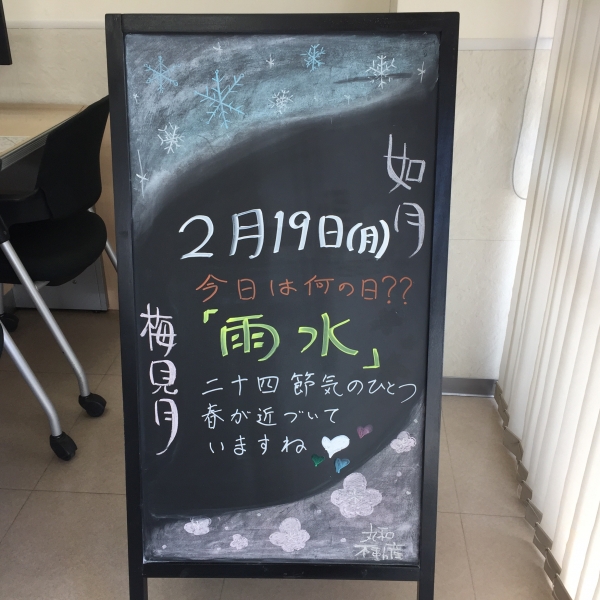 如月
2月19日(月)
今日は何の日??
「雨水」
二十四節気のひとつ
春が近づいて
いますね
梅見月
丸和
不動産